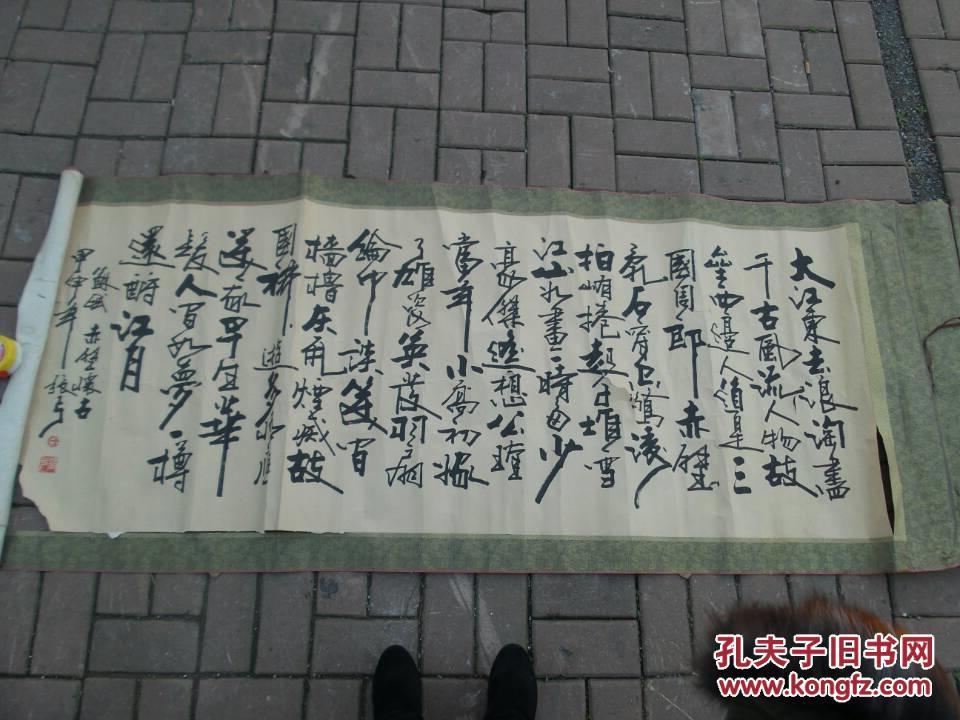 大江東去浪淘盡
千古風流人物故
壘西邊人道是三
國周郎赤壁
亂石穿空驚濤
拍岸捲起千堆雪
江山如畫一時多少
豪傑遙想公瑾
當年小喬初嫁
了雄姿英發羽扇
綸巾談笑間
檣櫓灰飛煙滅故
國神遊多情應
笑我早生華
髮人間如夢一樽
還酹江月
蘇軾赤壁懷古
甲申年
孔夫子旧书网
www.kongfz.com